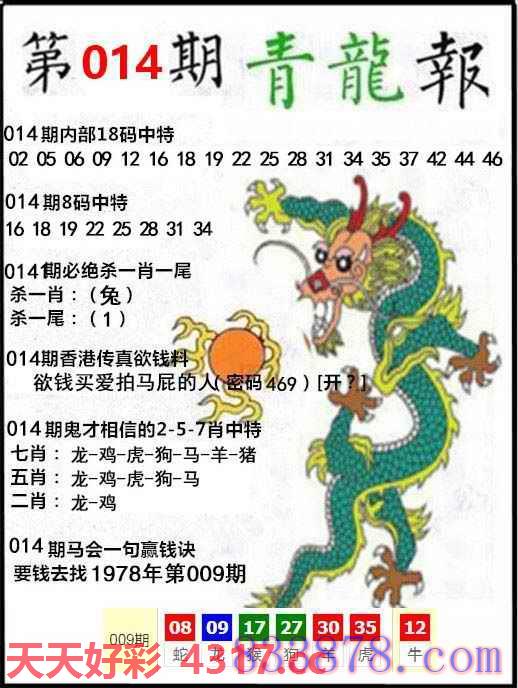 第014期青龍報
014期内部18码中特
02 05 06 09 12 16 18 19 22 25 28 31 34 35 37 42 44 46
014期8码中特
16 18 19 22 25 28 31 34
014期必绝杀一肖一尾
杀一肖：（兔）
杀一尾：（1）
014期香港传真欲钱料
欲钱买爱拍马屁的人(密码469)[开?]
014期鬼才相信的2-5-7肖中特
七肖：龙-鸡-虎-狗-马-羊-猪
五肖：龙-鸡-虎-狗-马
二肖：龙-鸡
014期马会一句赢钱诀
要钱去找1978年第009期
009期 08 09 17 27 30 35 12
蛇 龙 猴 狗 羊 虎 牛
天天好彩 4317.cc
853878.com